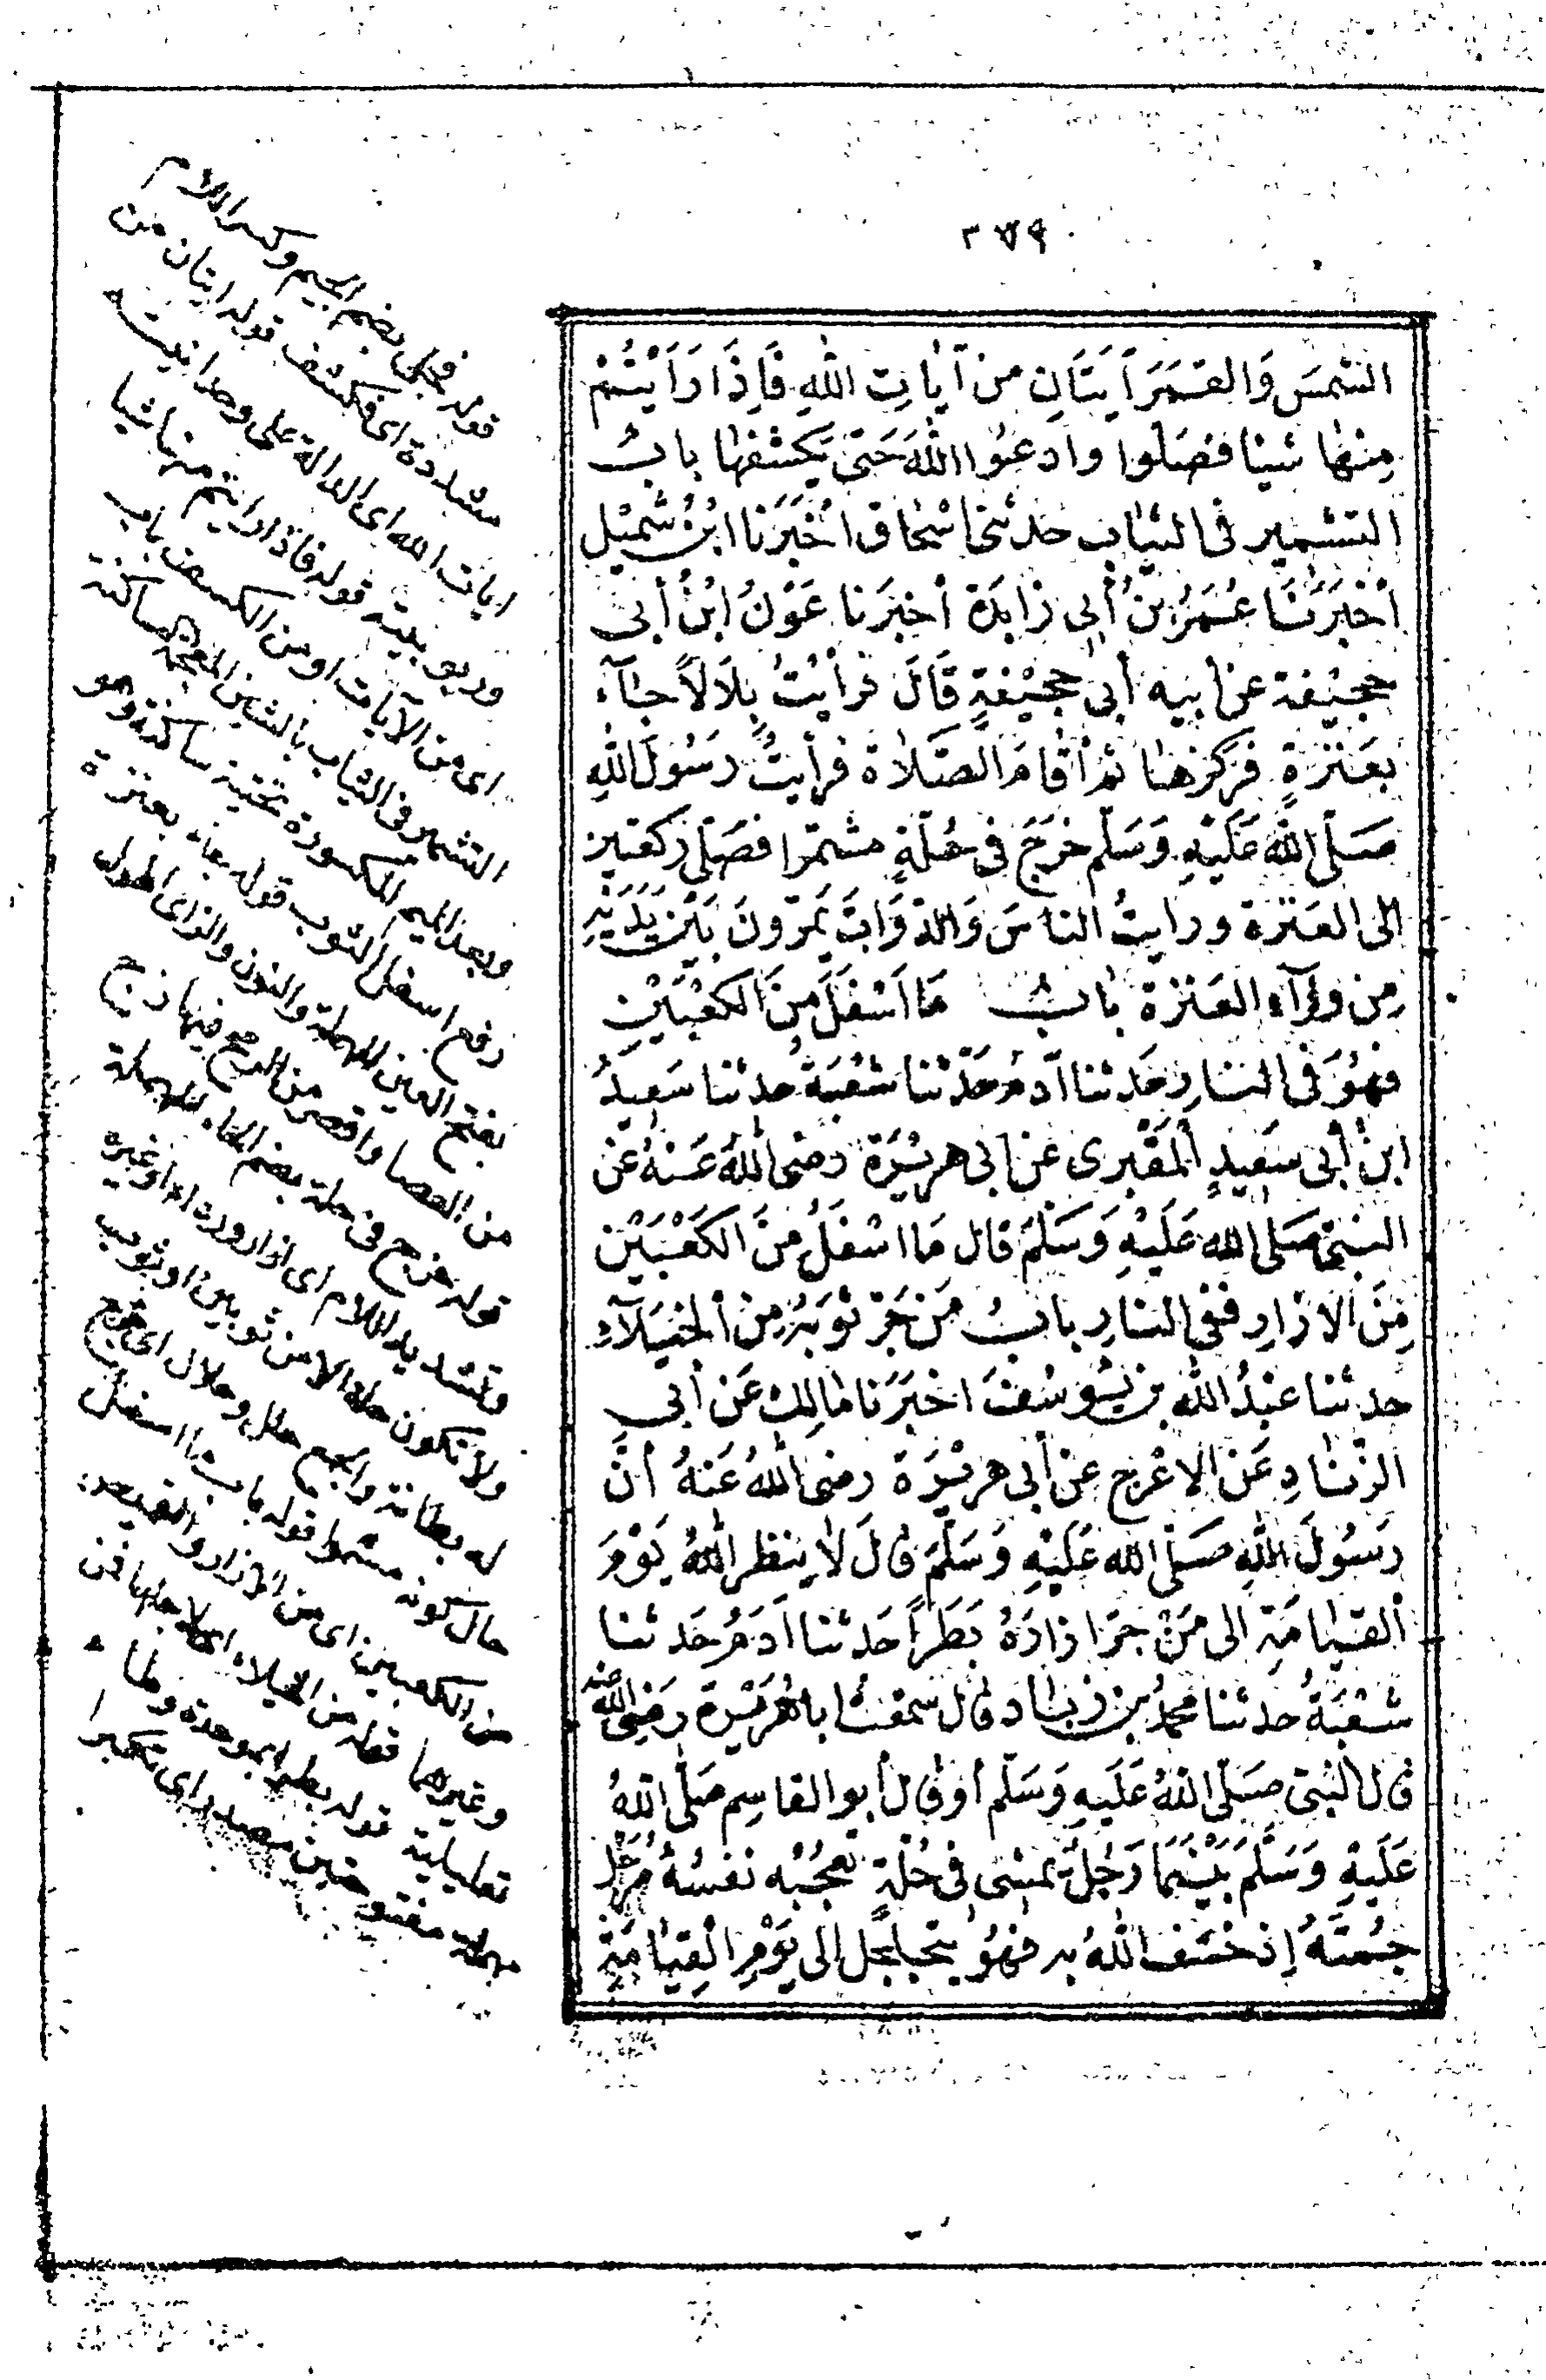 ٣٧٩
الشمسَ وَالقَمَرَ آيَتَانِ من آيَاتِ اللهِ فَاِذَا رَاَيْتُمْ
مِنْهَا شيئا فصَلوا وادعوا اللهَ حَتى يَكشفها بابُ
التشمير فى الثياب حدثنى اسْحاق اخْبَرَنا ابنُ شُمَيْل
أخْبَرَنَا عُمَرُ بنُ أبى زايدَة أخبرَنا عَوْنُ ابْنُ أبى
جحيْفة عن ابيه أبى جحيْفةٍ قَالَ فرأيْتُ بِلاَلاً جاَۤء
بعَنَزةٍ فركزها ثم أقامَ الصَّلاةَ فرأيتُ رسُولَ اللهِ
صَلّى اللهُ عَلَيْهِ وَسَلّم خرَجَ فى حُلّةٍ مشمّرا فصَلّى ركعتين
الى العَنَزَة ورايتُ الناسَ وَالدّوَابَّ يَمرّونَ بَيْن يَدَيْهِ
مِن وَرَآءِ العَنَزة بابُ مَا اَسْفَلَ مِنَ الكعْبَيْنِ
فهُوَ فى النارِ حَدثنا آدمُ حَدّثنا شُعْبَةُ حدثنا سَعِيدُ
ابنُ أبى سَعِيدٍ المَقْبرى عن ابى هريْرَة رضى اللهُ عَنهُ عن
النبىّ صَلى الله عَلَيْهِ وَسَلَّمَ قال مَا اسْفَلُ مِنَ الكَعْبَيْن
مِنَ الازارِ ففى النارِ بابُ مَن جَرّ ثوبَهُ مِن الخيَلآءِ
حدثنا عبْدُ اللهِ بن يُوسُفَ اخبَرَنا مالِك عَن أبى
الزّنادِ عَن الاعْرج عن أبى هريْرَة رضى اللهُ عَنهُ أنَّ
رسُولَ اللهِ صَلّى الله عَلَيْهِ وَسَلّمَ قالَ لا ينظر اللهُ يَوْمَ
القيامَةِ الى مَنْ جرّ ازارَهُ بَطَراً حَدثنا آدَمُ حَدثنا
شعْبَةُ حدثنا محمدُ بن زياد قال سمعْتُ ابا هُريْرة رَضىَ اللهُ عنه
قال النبىّ صَلّى اللهُ عَلَيهِ وَسَلّم أوْ قال أبو القاسِم صَلّى اللهُ
عَلَيهِ وَسَلّمَ بَيْنَمَا رَجُلٌ يَمشى فى حُلّةٍ تعجُبُه نفسُهُ مُرَجِّل
جُمتَهُ إذ خسَف اللهُ به فهُوَ يتجلجل الى يَوْمِ الْقِيَامَةِ
قوله فجلى بضم الجيم وكسر اللام
مشددة اى فكشف قوله ايتان من
ايات الله اى الدالة على وحدانيته
وربوبيته قوله فاذا رايتم منها شيا
اى من الآيات او من الكسف باب
التشمير فى الثياب بالشين المعجمة ساكنة
وبعد الميم المكسورة تحتية ساكنة وهو
رفع اسفل الثوب قوله جاء بعنزة
بفتح العين المهملة والنون والزاى اطول
من العصا واقصر من الرمح فيها زج
قوله خرج فى حلة بضم الحاء المهملة
وتشديد اللام اى ازار ورداء او غيره
ولا تكون حلة الا من ثوبين او ثوب
له بطانة والجمع حلل وحلال اى خرج
حال كونه مشمرا قوله باب ما اسفل
من الكعبين اى من الازار والقميص
وغيرهما قوله من الخيلاء اى لاجلها فمن
تعليلية قوله بطرا بموحدة وطاء
مهملة مفتوحتين مصدر اى تكبرا